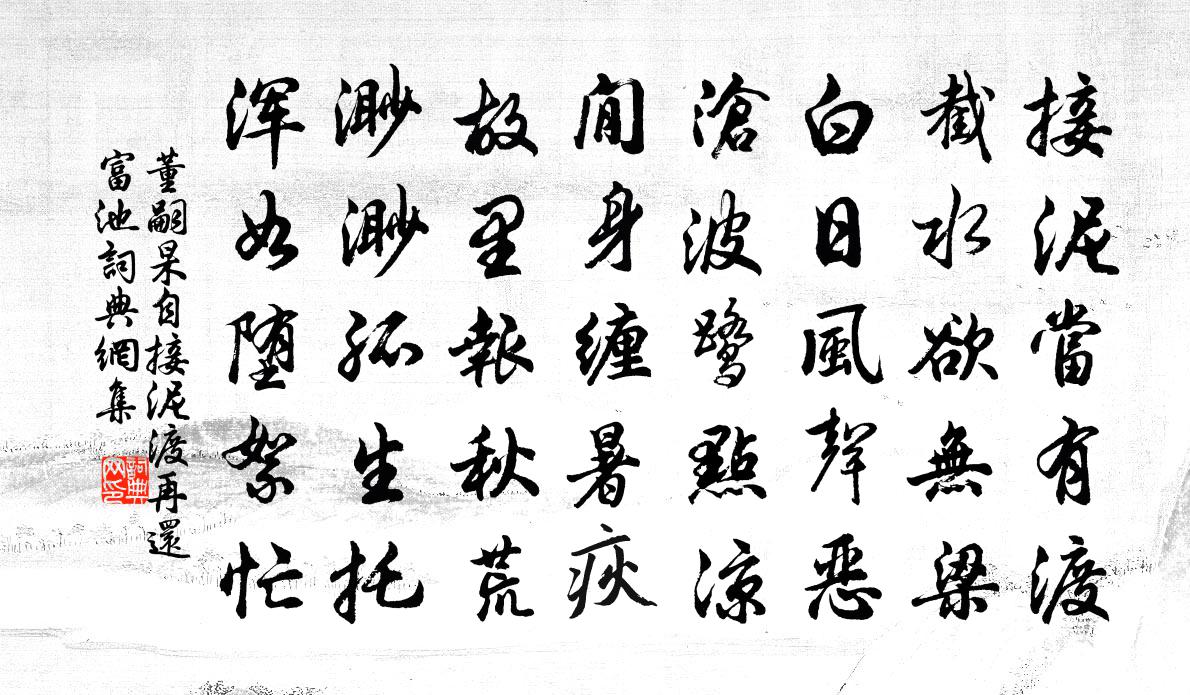 接泥當有渡
截水欲無梁
白日風聲惡
滄波鷺點涼
閒身纏暑疢
故里報秋荒
渺渺孤生托
渾如墮絮忙
董嗣杲自接泥渡再還
富池詞典網集
詞典網印